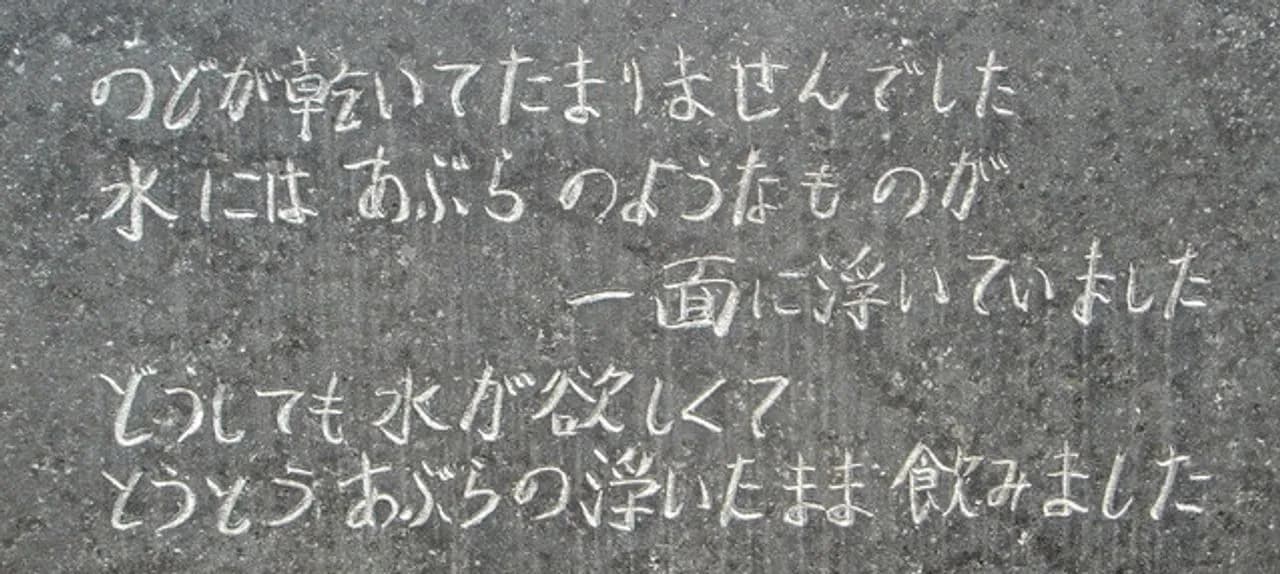 のどが乾いてたまりませんでした
水にはあぶらのようなものが
一面に浮いていました
どうしても水が欲しくて
とうとうあぶらの浮いたまま飲みました